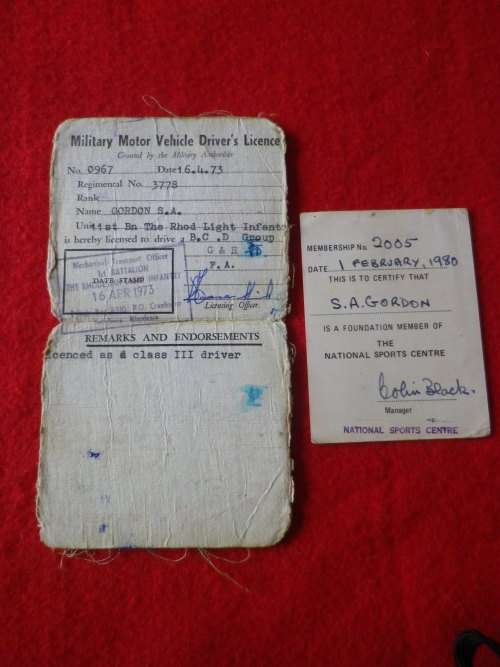 Military Motor Vehicle Driver's Licence
Granted by the Military Authority
No. 0967 Date 16.4.73
Regimental No. 3778
Rank
Name GORDON S.A.
Unit 1st Bn The Rhod Light Infant
is hereby licensed to drive a B.C .D Group
G & H
F.A.
Mechanical Transport Officer
1st BATTALION
DATE STAMP
THE RHODESIAN LIGHT INFANTRY
16 APR 1973
P.O. Cranborne
Rhodesia
Licensing Officer.
REMARKS AND ENDORSEMENTS
icenced as a class III driver
MEMBERSHIP No. 2005
DATE 1 FEBRUARY, 1980
THIS IS TO CERTIFY THAT
S.A. GORDON
IS A FOUNDATION MEMBER OF
THE
NATIONAL SPORTS CENTRE
Colin Black.
Manager
NATIONAL SPORTS CENTRE